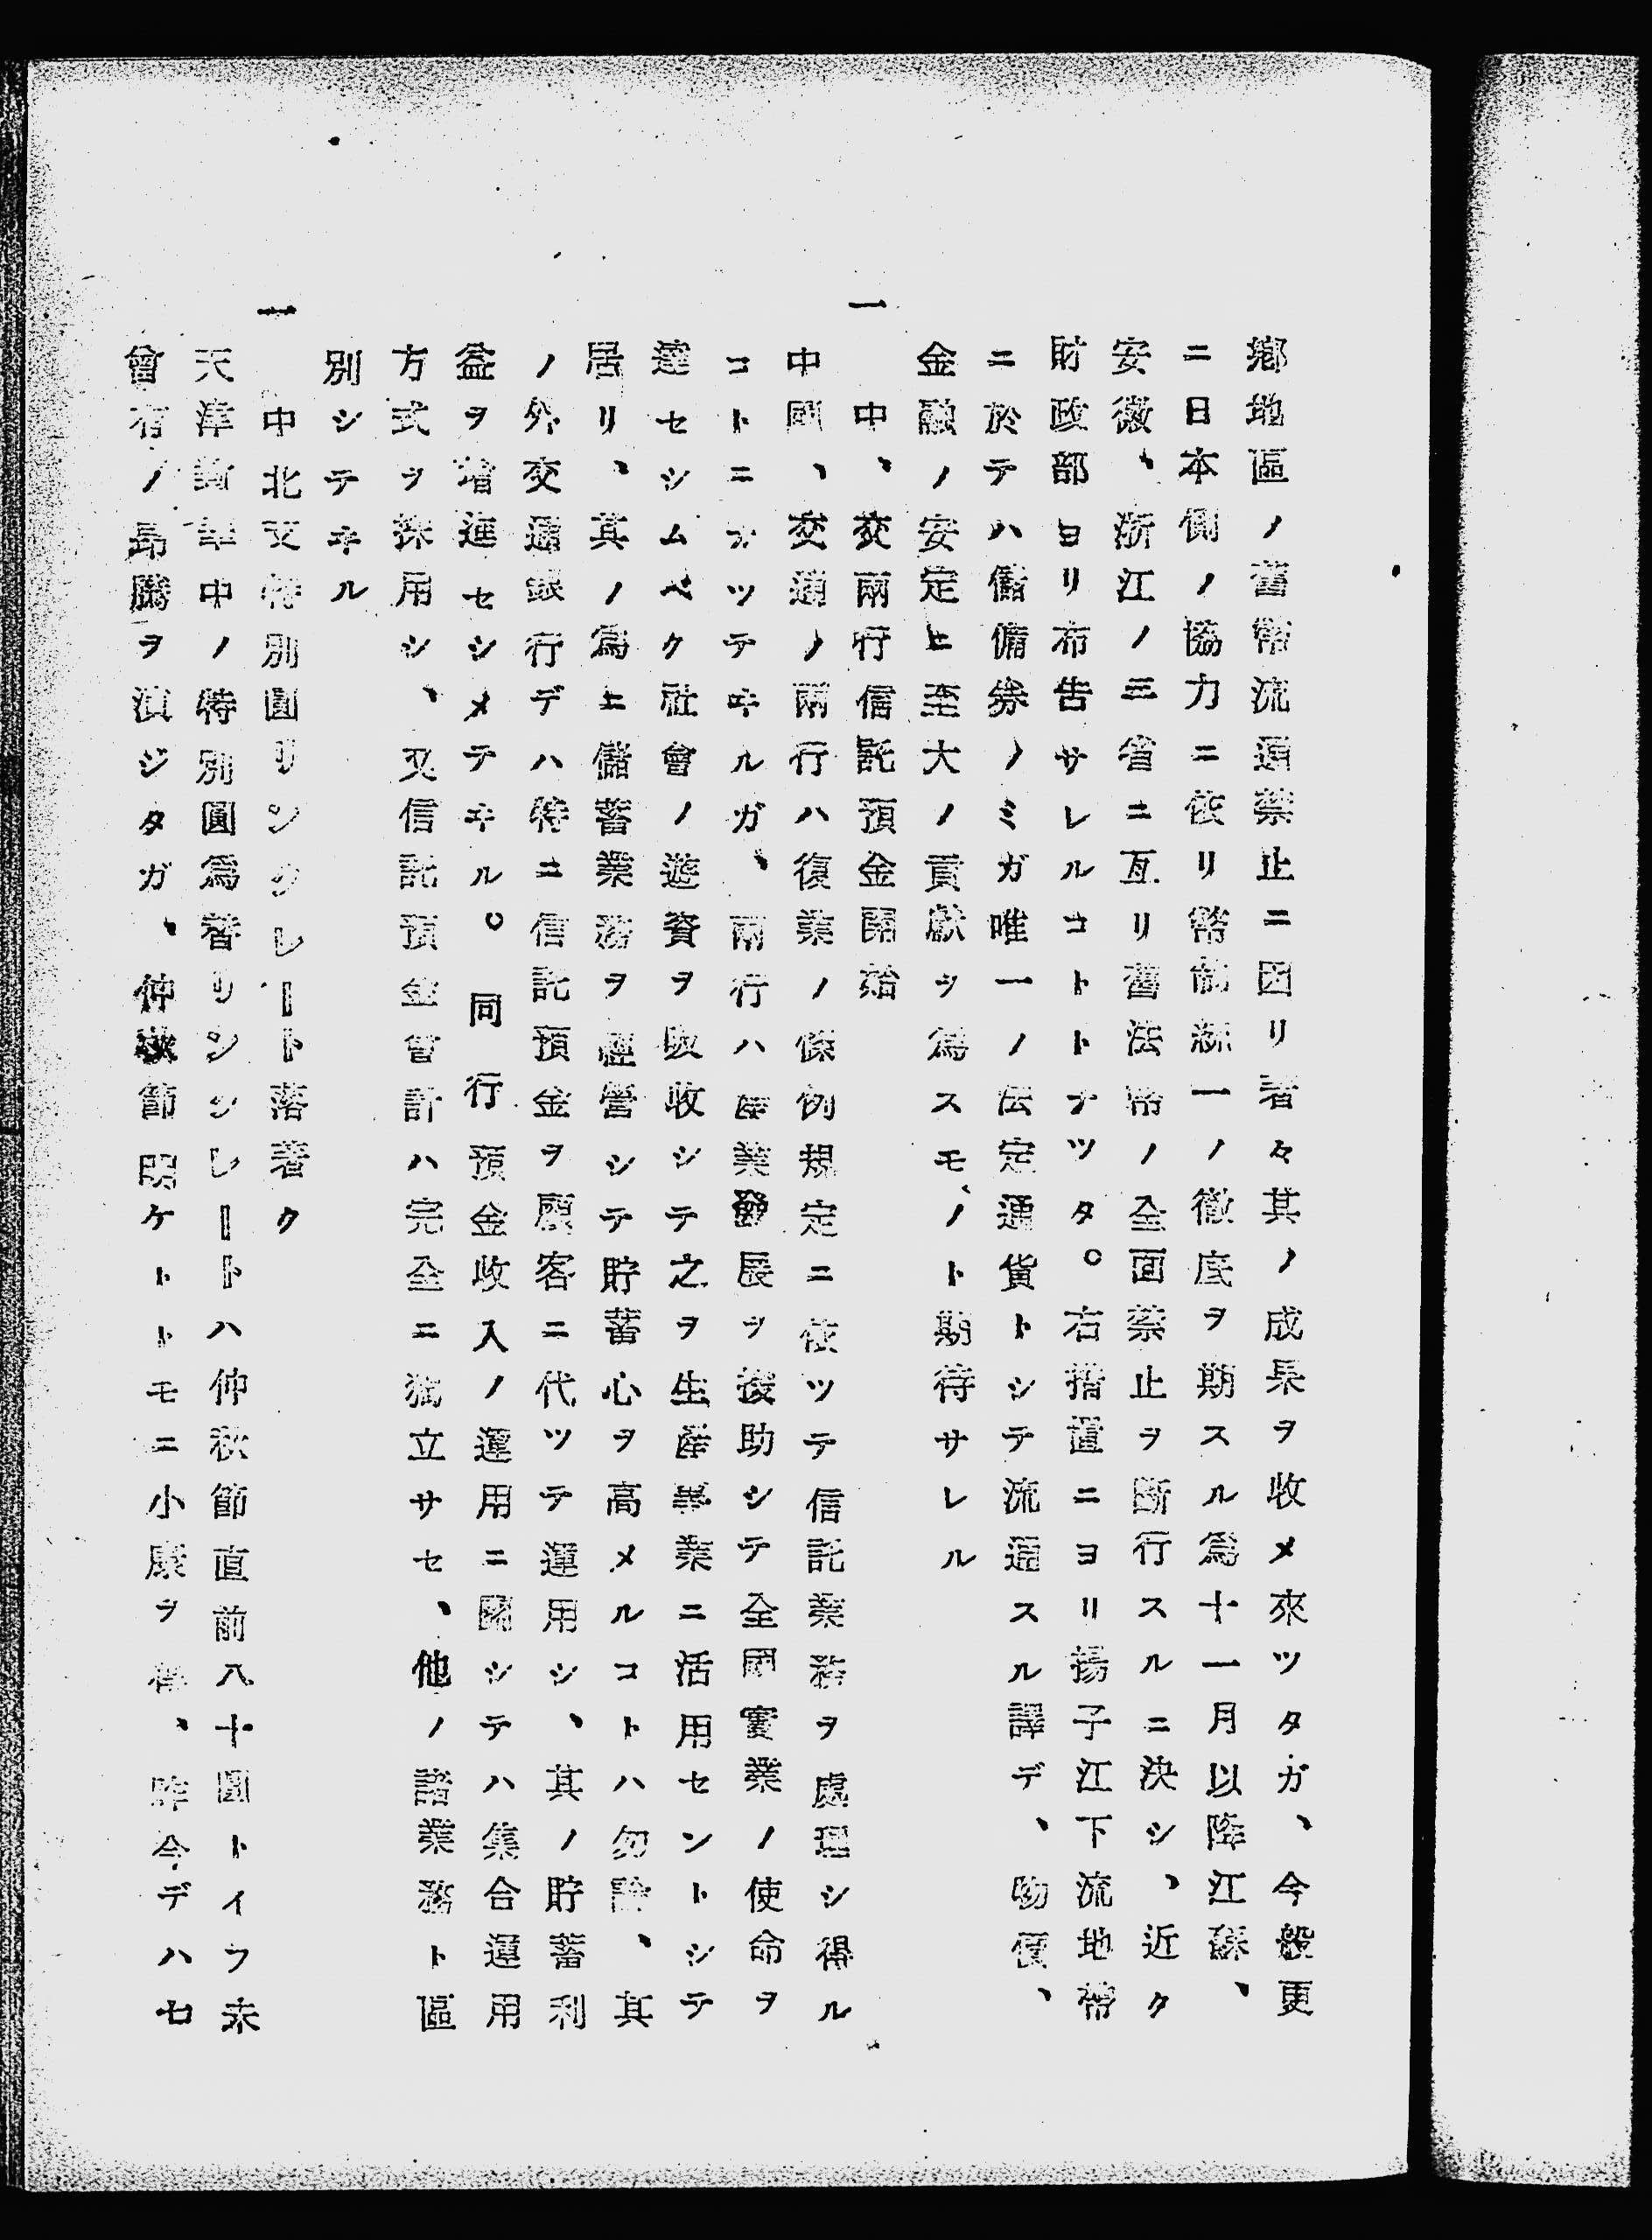 鄕地區ノ舊幣流通禁止ニ因リ著々其ノ成果ヲ收メ來ツタガ、今般更
ニ日本側ノ協力ニ依リ幣制統一ノ徹底ヲ期スル爲十一月以降江蘇、
安徽、浙江ノ三省ニ亙リ舊法幣ノ全面禁止ヲ斷行スルニ決シ、近ク
財政部ヨリ布吿サレルコトトナツタ。右措置ニヨリ揚子江下流地帶
ニ於テハ儲備券ノミガ唯一ノ法定通貨トシテ流通スル譯デ、物價、
金融ノ安定ヒ至大ノ貢獻ヲ爲スモノト期待サレル
一 中、交兩行信託預金開始
中國、交通ノ兩行ハ復業ノ條例規定ニ依ツテ信託業務ヲ處理シ得ル
コトニナツテヰルガ、兩行ハ產業發展ヲ援助シテ全國實業ノ使命ヲ
達セシムベク社會ノ遊資ヲ吸收シテ之ヲ生產事業ニ活用セントシテ
居リ、其ノ爲ヒ儲蓄業務ヲ經營シテ貯蓄心ヲ高メルコトハ勿論、其
ノ外交通銀行デハ特ニ信託預金ヲ顧客ニ代ツテ運用シ、其ノ貯蓄利
益ヲ增進セシメテヰル。同行預金收入ノ運用ニ關シテハ集合運用
方式ヲ採用シ、又信託預金會計ハ完全ニ獨立サセ、他ノ諸業務ト區
別シテヰル
一 中北支特別圓リンクレート落著ク
天津對華中ノ特別圓爲替リンクレートハ仲秋節直前八十圓トイフ未
曾有ノ昻騰ヲ演ジタガ、仲秋節明ケトトモニ小康ヲ得、昨今デハ七